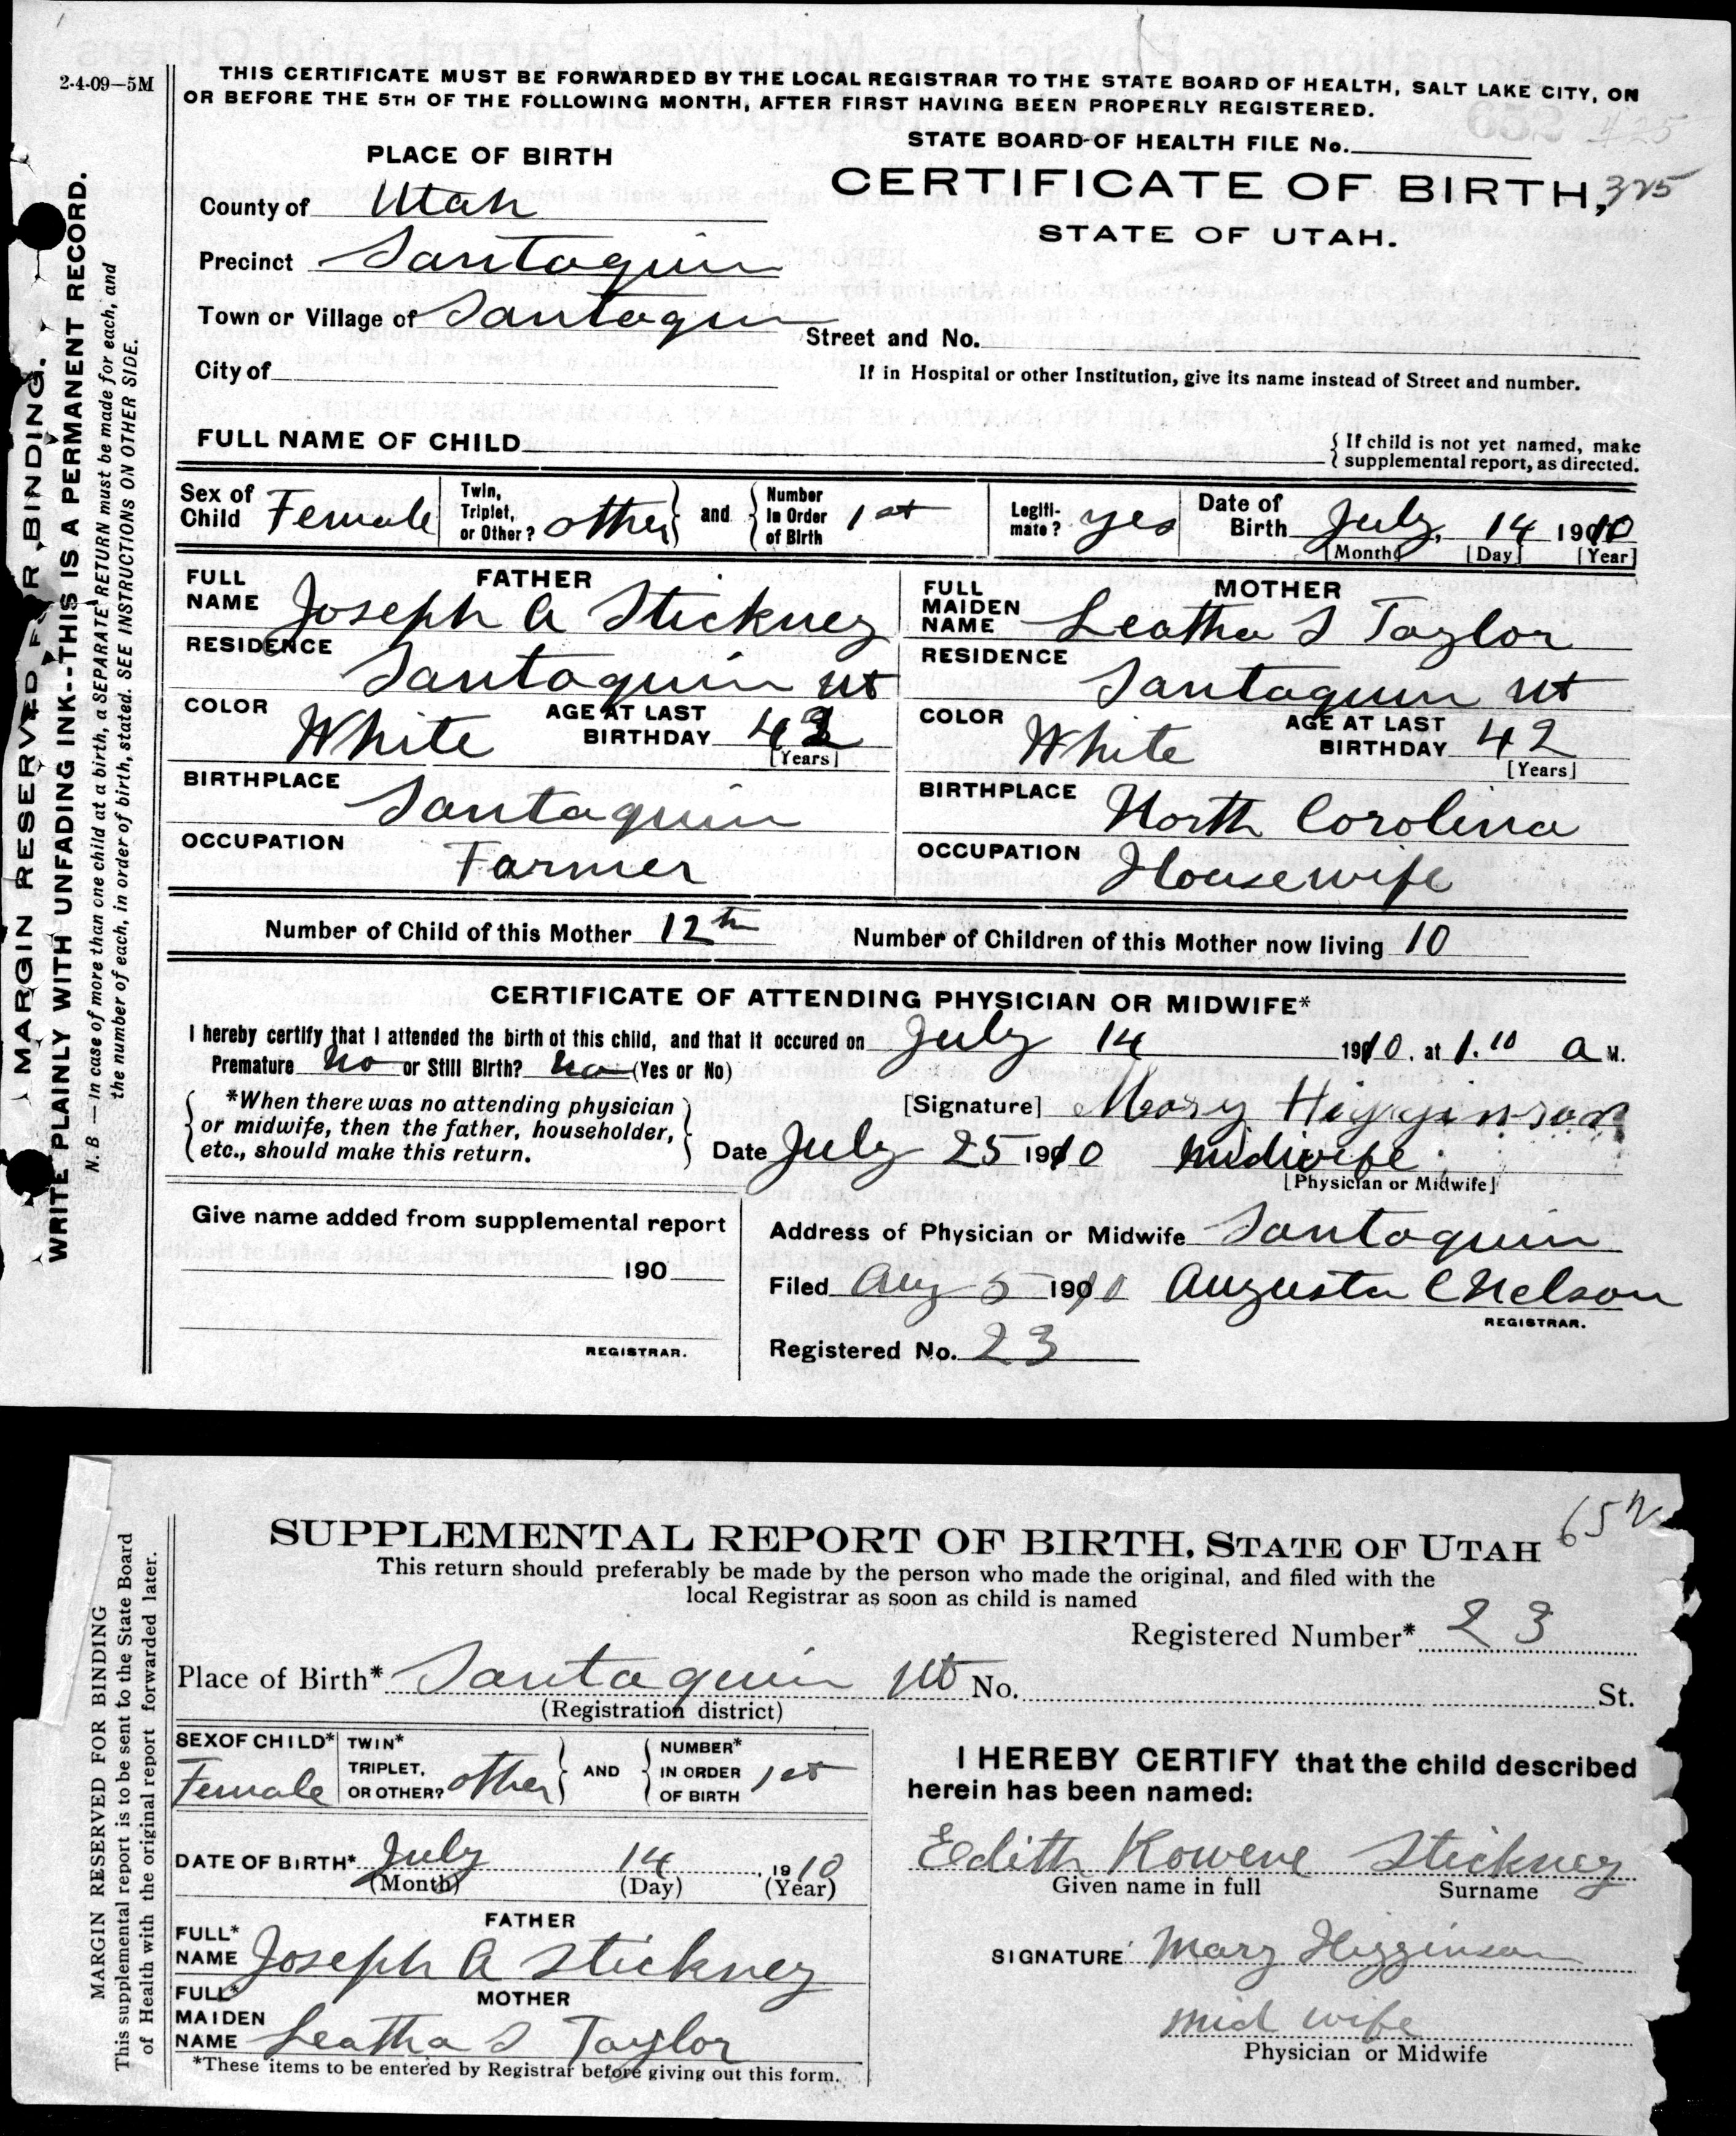 2-4-09—5M
THIS CERTIFICATE MUST BE FORWARDED BY THE LOCAL REGISTRAR TO THE STATE BOARD OF HEALTH, SALT LAKE CITY, ON
OR BEFORE THE 5TH OF THE FOLLOWING MONTH, AFTER FIRST HAVING BEEN PROPERLY REGISTERED.
STATE BOARD OF HEALTH FILE No. 425
PLACE OF BIRTH
CERTIFICATE OF BIRTH, 325
STATE OF UTAH.
County of Utah
Precinct Santaquin
Town or Village of Santaquin Street and No.
City of If in Hospital or other Institution, give its name instead of Street and number.
FULL NAME OF CHILD { If child is not yet named, make
supplemental report, as directed.
Sex of Child Female Twin, Triplet, or Other? other and Number in Order of Birth 1st Legiti-mate? yes Date of Birth July 14 1910
[Month] [Day] [Year]
FATHER
FULL NAME Joseph A Stickney
RESIDENCE Santaquin Ut
COLOR White AGE AT LAST BIRTHDAY 42
[Years]
BIRTHPLACE Santaquin
OCCUPATION Farmer
MOTHER
FULL MAIDEN NAME Leatha S Taylor
RESIDENCE Santaquin Ut
COLOR White AGE AT LAST BIRTHDAY 42
[Years]
BIRTHPLACE North Carolina
OCCUPATION Housewife
Number of Child of this Mother 12th Number of Children of this Mother now living 10
CERTIFICATE OF ATTENDING PHYSICIAN OR MIDWIFE*
I hereby certify that I attended the birth of this child, and that it occured on July 14 1910. at 1.10 a M.
Premature No or Still Birth? No (Yes or No)
*When there was no attending physician
or midwife, then the father, householder,
etc., should make this return.
[Signature] Mary Higginson
Date July 25 1910 Midwife
[Physician or Midwife]
Give name added from supplemental report
190
REGISTRAR.
Address of Physician or Midwife Santaquin
Filed Aug 5 1910 Augusta C Nelson
REGISTRAR.
Registered No. 23
MARGIN RESERVED FOR BINDING.
WRITE PLAINLY WITH UNFADING INK--THIS IS A PERMANENT RECORD.
N. B — In case of more than one child at a birth, a SEPARATE RETURN must be made for each, and
the number of each, in order of birth, stated. SEE INSTRUCTIONS ON OTHER SIDE.
652
SUPPLEMENTAL REPORT OF BIRTH, STATE OF UTAH
This return should preferably be made by the person who made the original, and filed with the
local Registrar as soon as child is named
Registered Number* 23
Place of Birth* Santaquin Ut No. St.
(Registration district)
SEX OF CHILD* Female TWIN* TRIPLET, OR OTHER? other AND NUMBER* IN ORDER OF BIRTH 1st
DATE OF BIRTH* July 14, 1910
(Month) (Day) (Year)
FATHER
FULL* NAME Joseph A Stickney
MOTHER
FULL* MAIDEN NAME Leatha S Taylor
*These items to be entered by Registrar before giving out this form.
I HEREBY CERTIFY that the child described
herein has been named:
Edith Rowene Stickney
Given name in full Surname
SIGNATURE Mary Higginson
mid wife
Physician or Midwife
MARGIN RESERVED FOR BINDING
This supplemental report is to be sent to the State Board
of Health with the original report forwarded later.